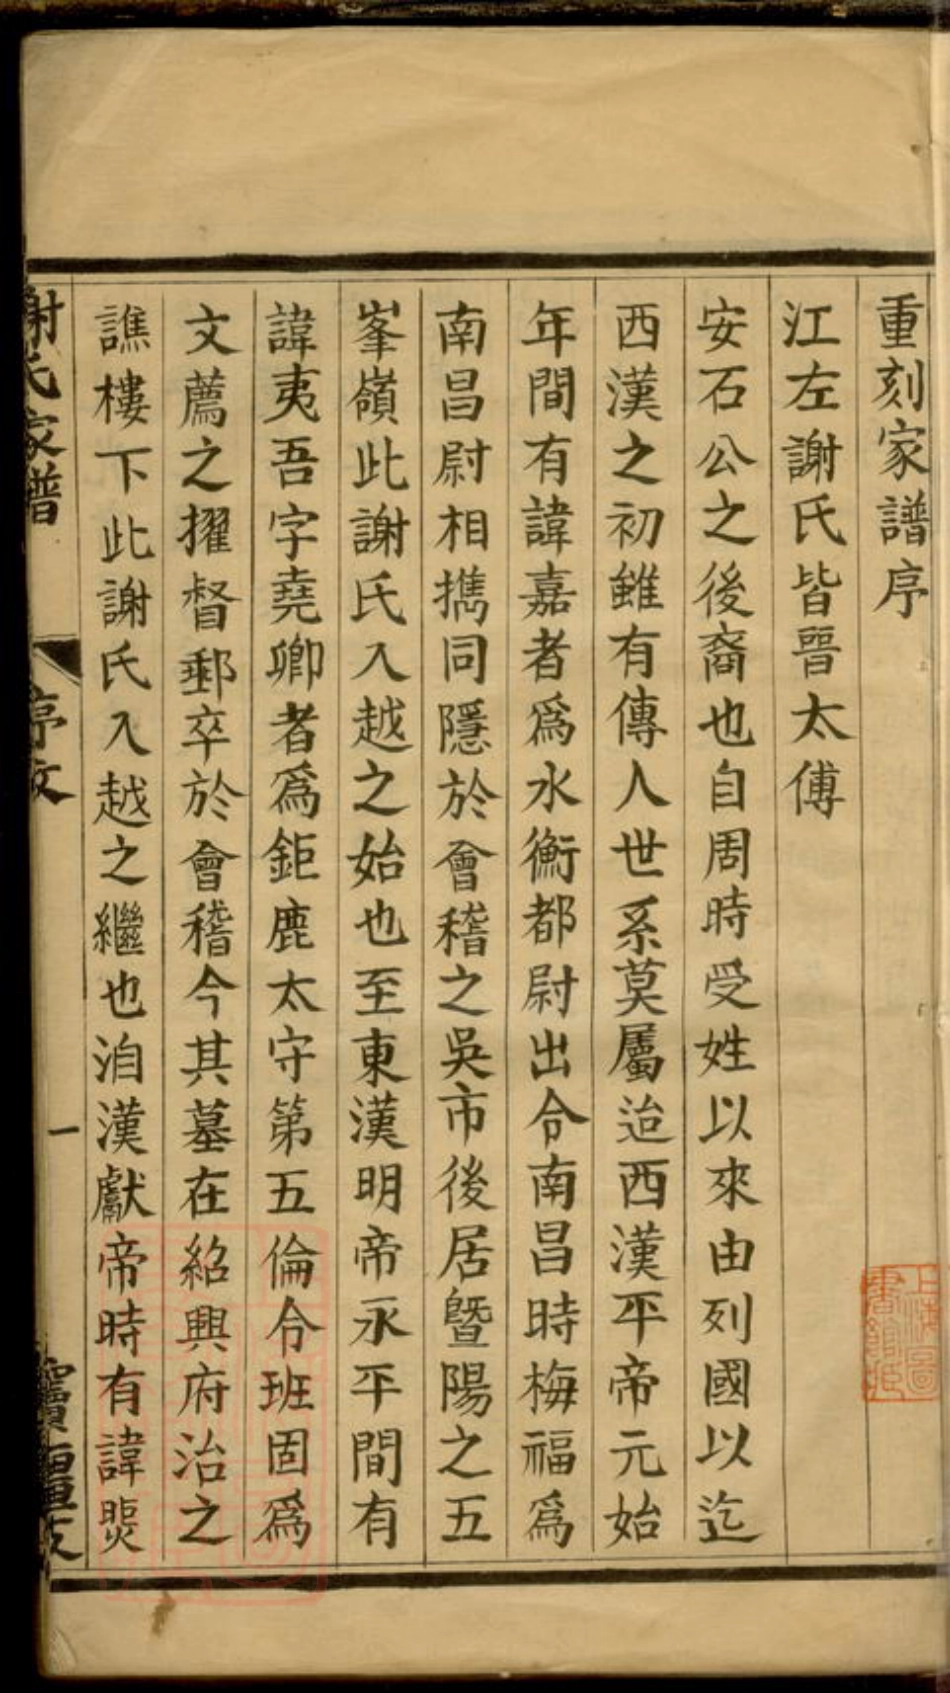 重刻家譜序
江左謝氏皆晉太傅
安石公之後裔也自周時受姓以來由列國以迄
西漢之初雖有傳人世系莫屬迨西漢平帝元始
年間有諱嘉者爲水衡都尉出合南昌時梅福爲
南昌尉相擕同隱於會稽之吳市後居曁陽之五
峯嶺此謝氏入越之始也至東漢明帝永平間有
諱夷吾字堯卿者爲鉅鹿太守第五倫令班固爲
文薦之擢督郵卒於會稽今其墓在紹興府治之
譙樓下此謝氏入越之繼也洎漢獻帝時有諱煚
謝氏家譜
序文
一
寶
上海圖書館